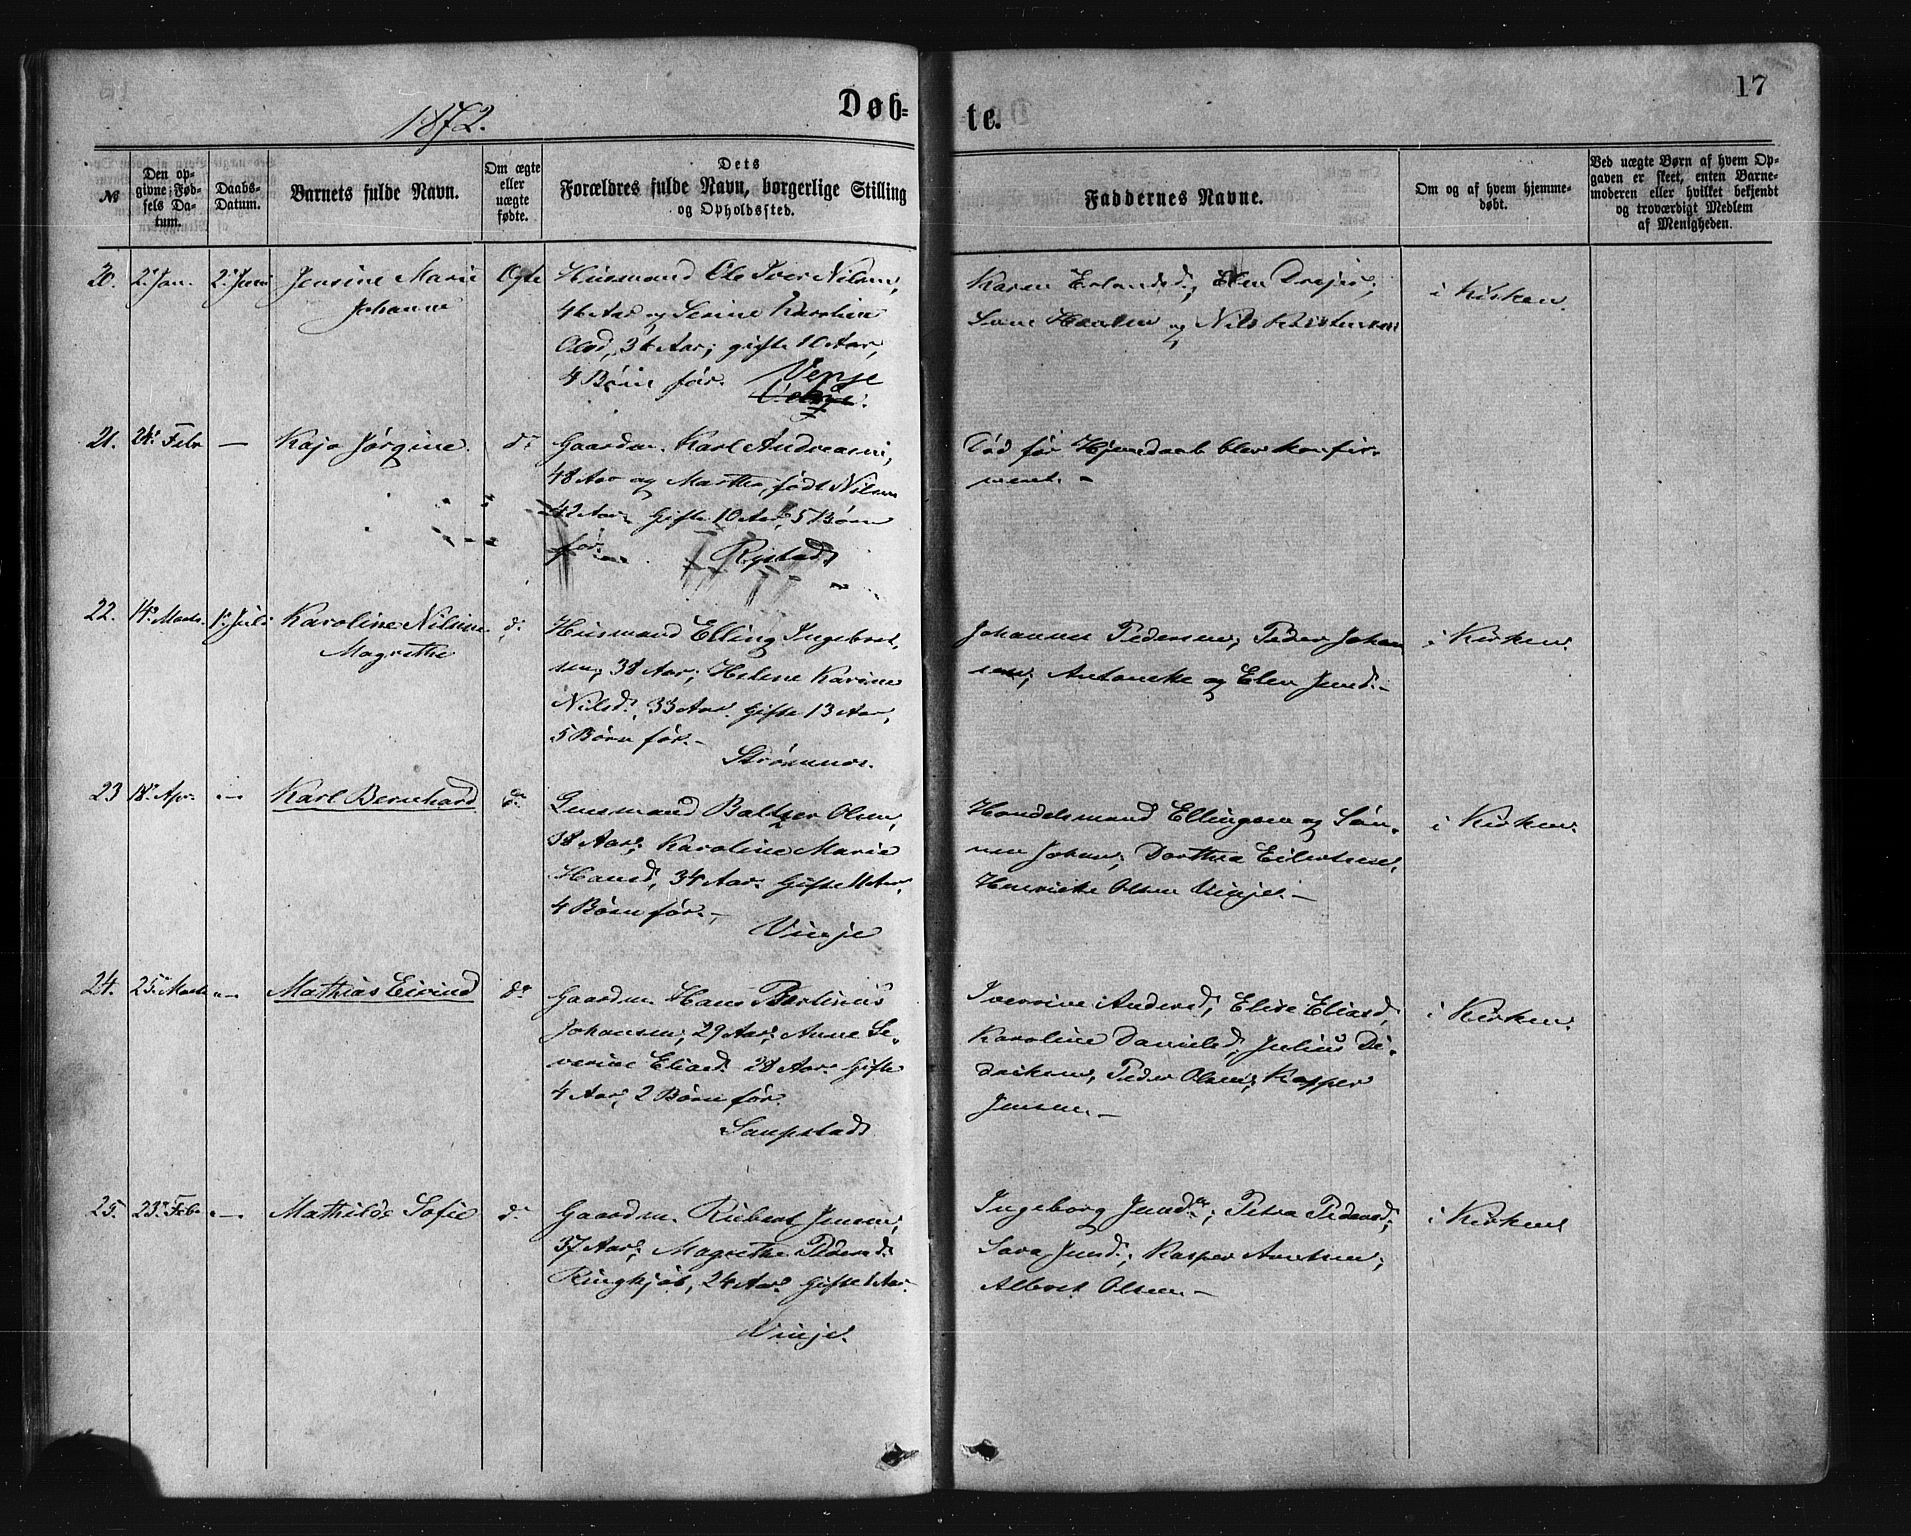 17
1872.
Døb-
te.
№
Den op-
givne Fød-
sels Da-
tum.
Daabs-
Datum.
Barnets fulde Navn.
Om ægte
eller
uægte
fødte.
Dets
Forældres fulde Navn, borgerlige Stilling
og Opholdssted.
Faddernes Navne.
Om og af hvem hjemme-
døbt.
Ved uægte Børn af hvem Op-
gaven er skeet, enten Barne-
moderen eller hvilket bekjendt
og troværdigt Medlem
af Menigheden.
20. 2. Jan. 2. Juni Jensine Marie
Johanne
Ægte
Husmand Ole Iver Nilsen,
46 Aar og Serine Karoline
Olsd, 36 Aar; gifte 10 Aar,
4 Børn før.
Karen Erlandsd.; Elen
og Nils Kristensen
i Kirken
21. 24. Febr — Kaja Jørgine. do
Gaardm. Karl Andreasen,
48 Aar og Martha, født Nilsen
42 Aar. Gifte 10 Aar, 5 Børn
før. Rystad
Død før Hjemdaab blev konfir-
meret. —
22. 14. Marts. 1. Juli Karoline Nilsine
Magrethe
do
Husmand Elling Ingebret-
sen, 38 Aar; Helene Karine
Nilsd. 33 Aar. Gifte 13 Aar,
5 Børn før. —
Strømmos.
Johannes Pedersen; Peder Johan
sen; og Elen Jensd. —
i Kirken.
23 18. Apr. — Karl Bernhard do
Lensmand Baltzer Olsen,
38 Aar; Karoline Marie
Hansd, 34 Aar. Gifte 11 Aar,
4 Børn før. —
Vinje
Handelsmand Ellingsen og Søn-
nen Johan; Dorthea Eilertsen,
Henrikke Olsen Vinje. —
i Kirken.
24. 25. Marts — Mathias Eivind do
Gaardm. Hans Bertinius
Johansen, 29 Aar; Anne Se-
verine Eliasd. 28 Aar. Gifte
4 Aar, 2 Børn før.
Andersd; Elise Eliasd,
Karoline Danielsd, Julius Di-
driksen, Peder Olsen, Kasper
Jensen. —
i Kirken.
25. 23. Febr — Mathilde Sofie do
Gaardm. Rubert Jensen,
37 Aar; Magrethe Pedersd.
Ringkjøb, 24 Aar. Gifte 1 Aar.
Vinje.
Ingeborg Jensd.; Petra Pedersd;
Sara Jensd.; Kasper Arntsen;
Albert Olsen. —
i Kirken